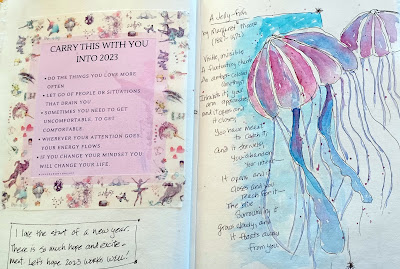 CARRY THIS WITH YOU
INTO 2023
• DO THE THINGS YOU LOVE MORE
OFTEN
• LET GO OF PEOPLE OR SITUATIONS
THAT DRAIN YOU
• SOMETIMES YOU NEED TO GET
UNCOMFORTABLE, TO GET
COMFORTABLE.
• WHEREVER YOUR ATTENTION GOES
YOUR ENERGY FLOWS.
• IS YOU CHANGE YOUR MINDSET YOU
WILL CHANGE YOUR LIFE.
I love the start of a new year.
There is so much hope and excite-
ment. Let's hope 2023 works well!
A Jelly-fish
by Marianne Moore
Visible, invisible
A fluctuating charm
An amber-colored
amethyst
Inhabits it; your
arm approaches,
and it opens and
it closes;
You have meant
to catch it,
And it shrivels;
You abandon
Your intent—
It opens, and it
Closes and you
reach for it—
The blue
Surrounding it
Grows cloudy, and
It floats away
from you.